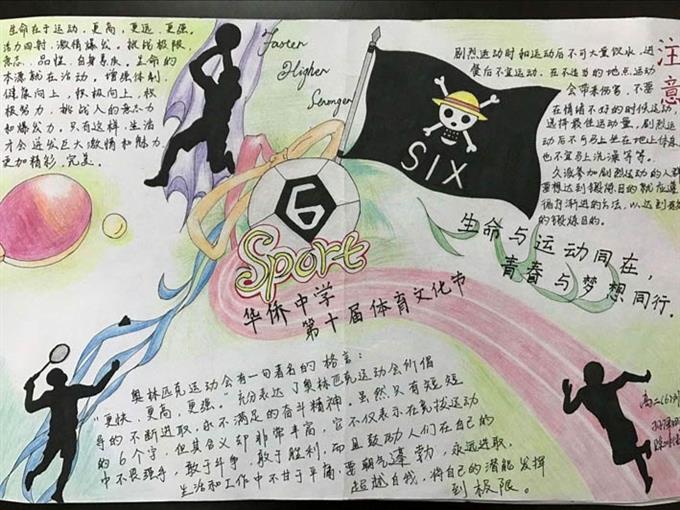 生命在于运动，更高，更远，更强。
活力四射，激情爆发。挑战极限，
意志，品性，自身素质。生命的
本源就在活动，增强体制，
健康向上，积极向上，积
极努力，挑战人的意志力
和爆发力。只有这样，生活
才会迸发巨大激情和魅力
更加精彩，完美。
Faster
Higher
Stronger
SIX
剧烈运动时和运动后不可大量饮水，进
餐后不宜运动。在不适当的地点运动
会带来伤害，不要
在情绪不好的时候运动，
选择最佳运动量，剧烈运
动后不可马上坐在地上休息
也不宜马上洗澡等等。
久未参加剧烈运动的人群
要想达到锻炼目的就应遵
循序渐进的方法，以达到
的锻炼目的。
注意
6
Sport
华侨中学
第十届体育文化节
生命与运动同在，
青春与梦想同行。
奥林匹克运动会有一句著名的格言：
"更快，更高，更强。"充分表达了奥林匹克运动会所倡
导的不断进取，永不满足的奋斗精神。虽然只有短短
的6个字，但其含义却非常丰富，它不仅表示在竞技运动
中不畏强手，敢于斗争，敢于胜利，而且鼓励人们在自己的
生活和工作中不甘于平庸，要朝气蓬勃，永远进取，
超越自我，将自己的潜能发挥
到极限。
高二(6)班